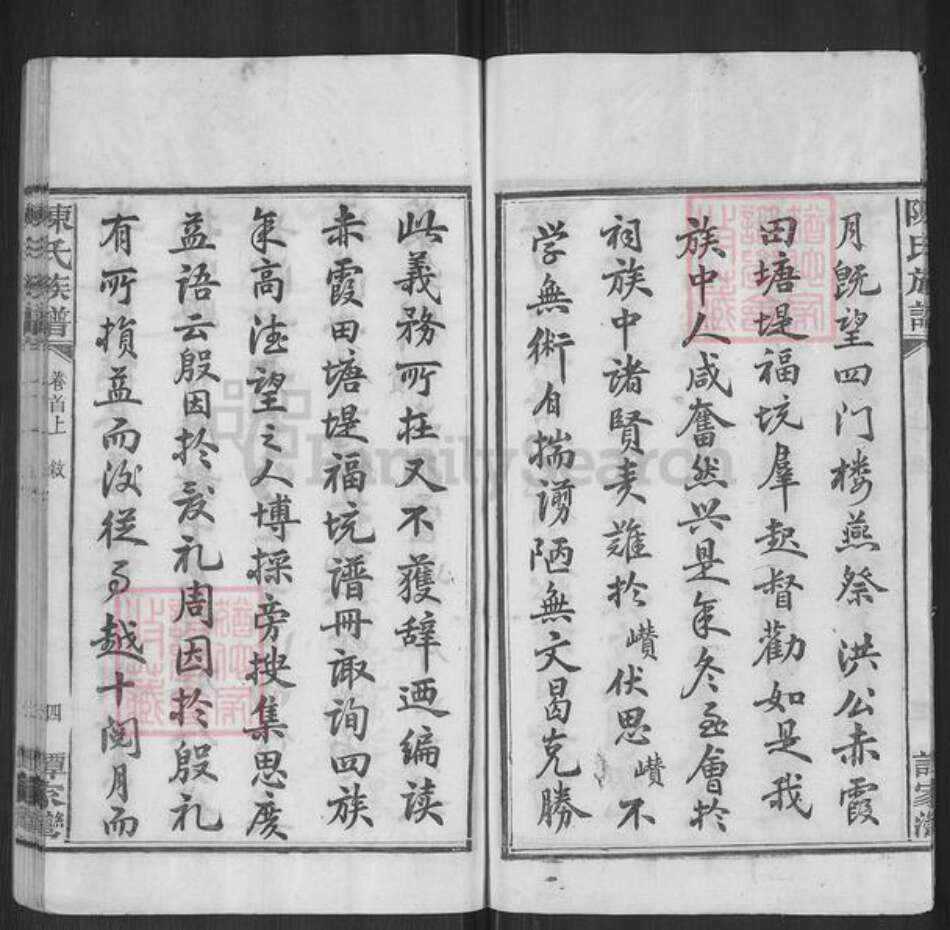 陳氏族譜
月旣望四门楼燕祭 洪公赤霞
田塘堤福坑羣起督勸如是我
族中人咸奮然兴是年冬至會於
祠族中諸賢责难於巑伏思巑不
学無術自揣谫陋無文曷克勝
此義務所在又不獲辞迺编读
赤霞田塘堤福坑谱冊諏询四族
年高德望之人博採旁搜集思广
益语云殷因於夏礼周因於殷礼
有所損益而後從事越十閱月而
陳氏族譜
卷首上 敘
四
譚家灣
FamilySearch